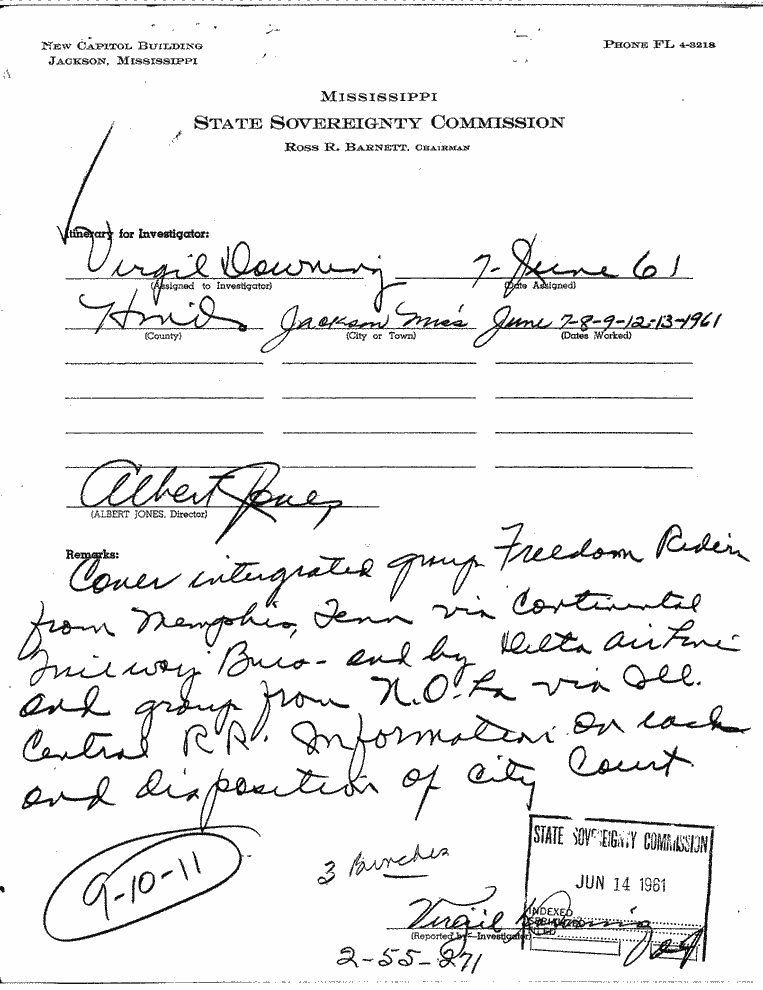 NEW CAPITOL BUILDING
JACKSON, MISSISSIPPI
PHONE FL 4-3218
MISSISSIPPI
STATE SOVEREIGNTY COMMISSION
ROSS R. BARNETT, CHAIRMAN
Itinerary for Investigator:
Virgil Downing 7-June 61
(Assigned to Investigator) (Date Assigned)
Hinds Jackson Miss June 7-8-9-12-13-1961
(County) (City or Town) (Dates Worked)
Albert Jones
(ALBERT JONES, Director)
Remarks:
Cover intergrated group Freedom Riders
from Memphis, Tenn via Continental
Trailway Bus- and by Delta Air Line
and group from N.O. La via Ill.
Central R.R. Information on each
and disposition of City Court
9-10-11
3 Bunches
STATE SOVEREIGNTY COMMISSION
JUN 14 1961
INDEXED
Virgil Downing
(Reported by Investigator)
2-55-271